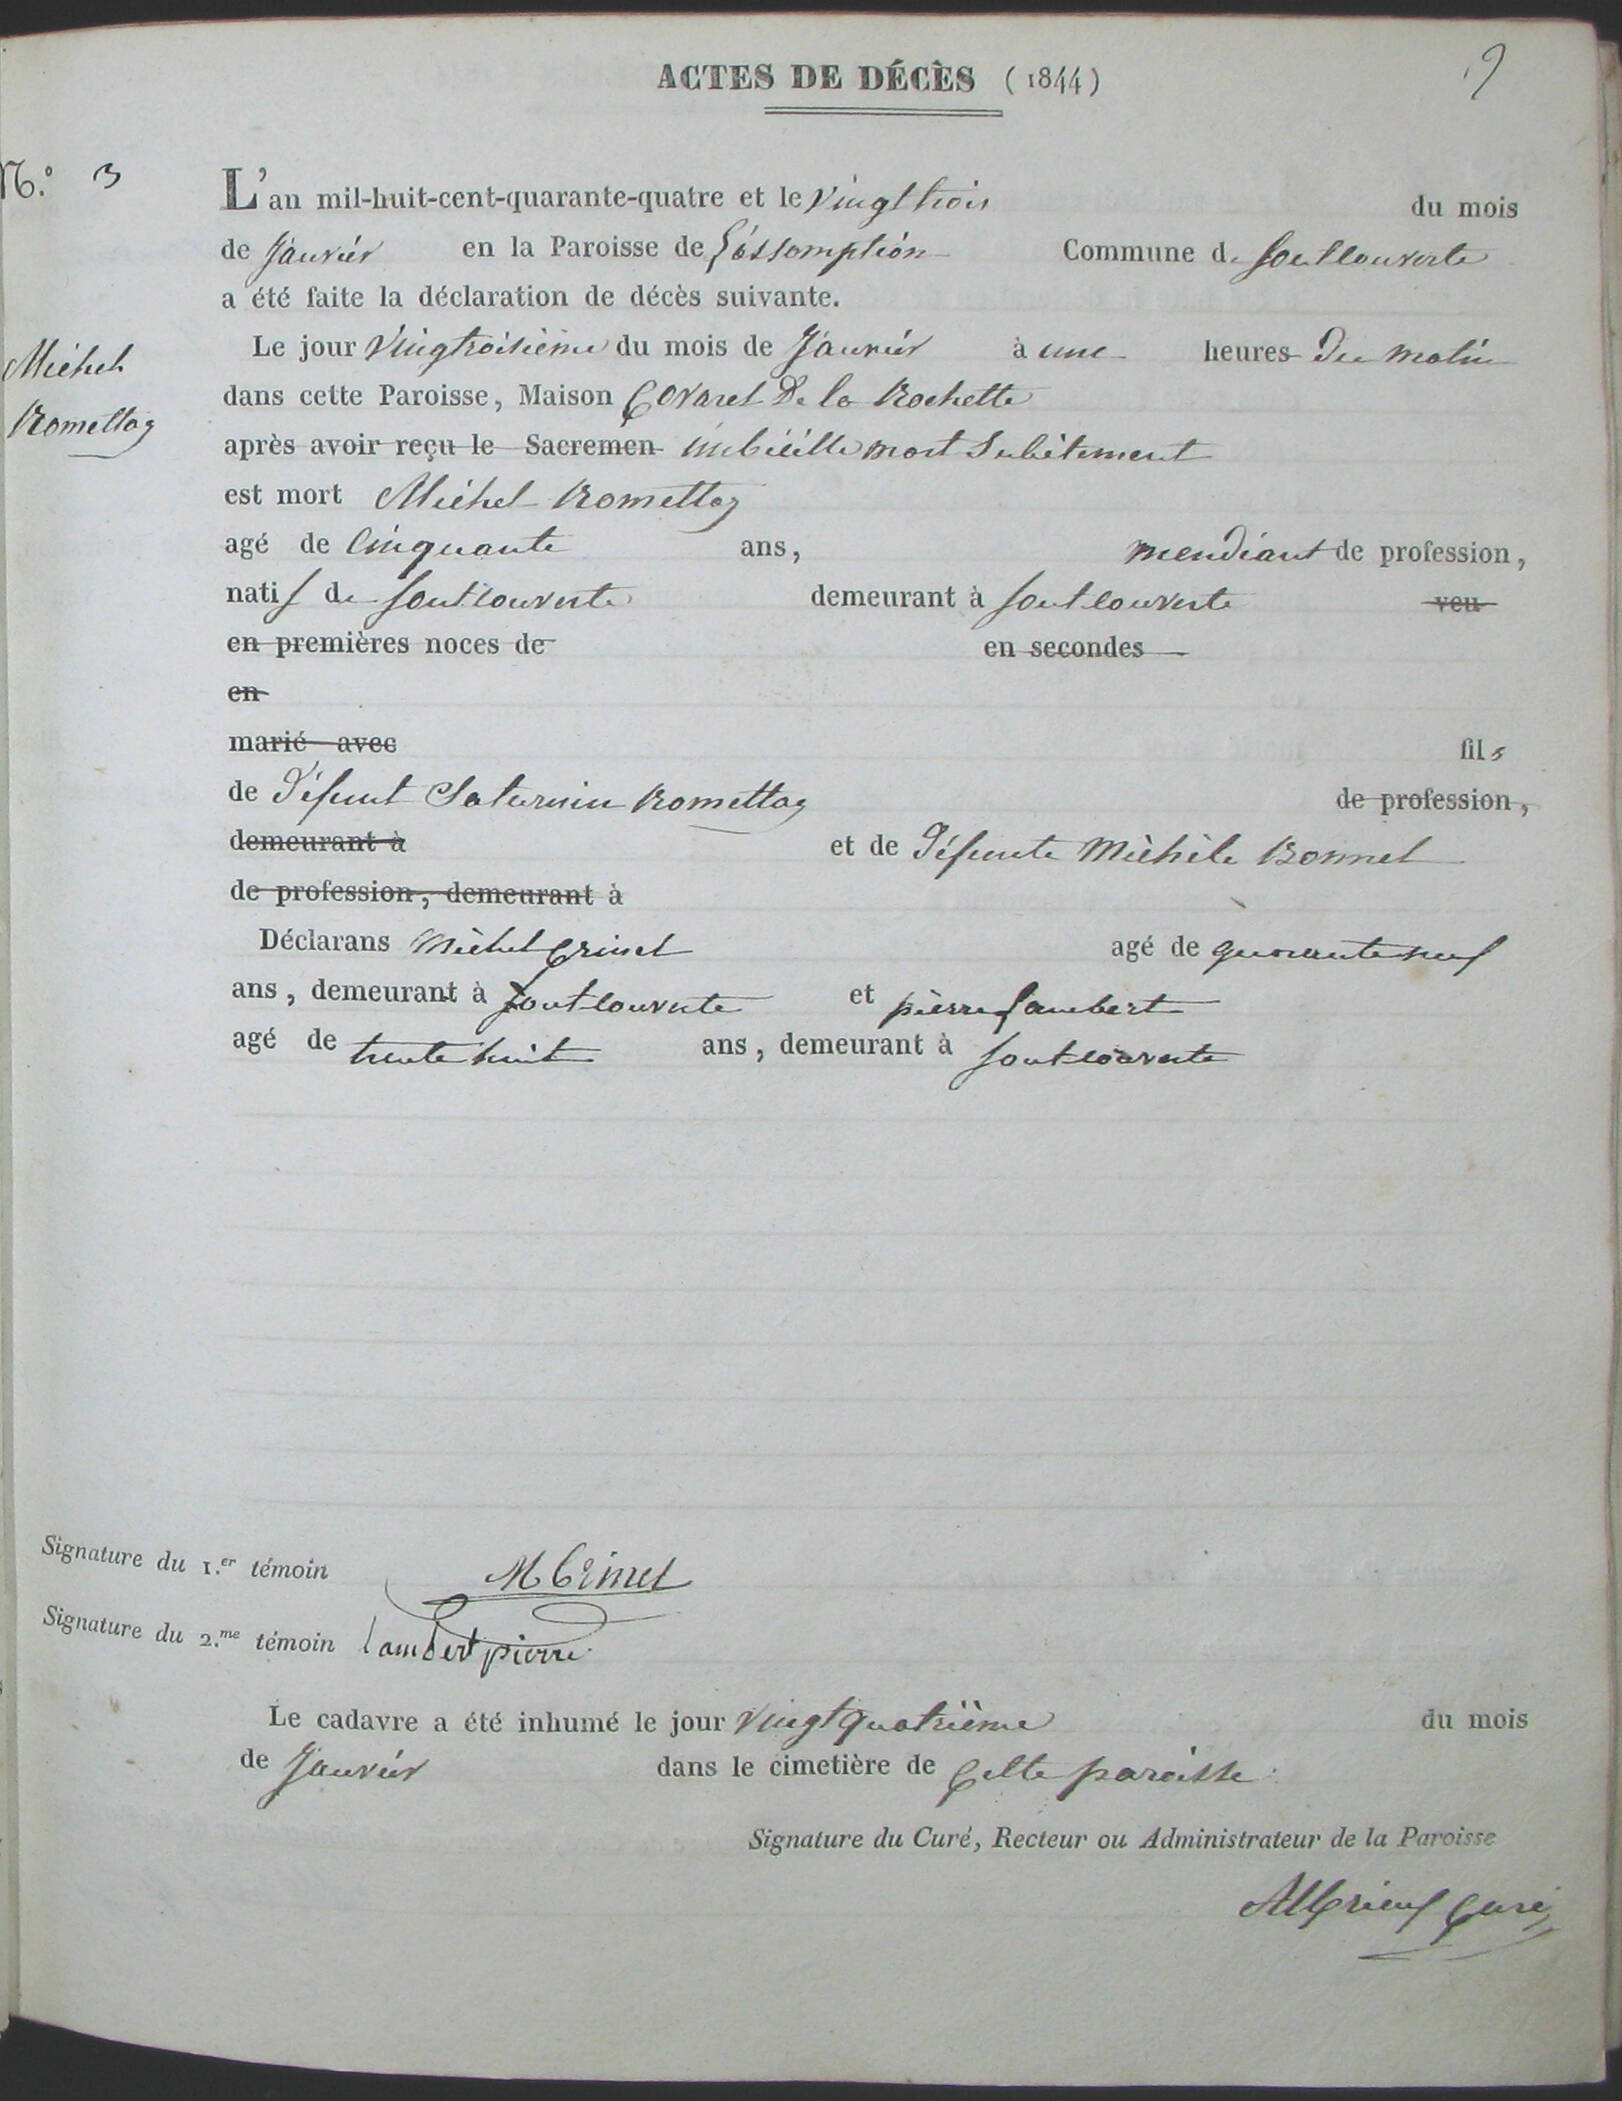 ACTES DE DÉCÈS (1844)
9
N.° 3
L'an mil-huit-cent-quarante-quatre et le vingt trois du mois
de Janvier en la Paroisse de L'assomption Commune de fontcouverte
a été faite la déclaration de décès suivante.
Le jour vingtroisième du mois de Janvier à une heures du matin
dans cette Paroisse, Maison Covarel De la Rochette
Michel
Romettaz
après avoir reçu le Sacremen imbécille mort Subitement
est mort Michel Romettaz
agé de Cinquante ans, mendiant de profession,
natif de fontcouverte demeurant à fontcouverte veu
en premières noces de en secondes
en
marié avec fils
de Défunt Saturnin Romettaz de profession,
demeurant à et de Défunte Michèle Bonnel
de profession, demeurant à
Déclarans Michel Grinel agé de quarante neuf
ans, demeurant à fontcouverte et pierre Lambert
agé de trente huit ans, demeurant à fontcouverte
Signature du 1.er témoin M
Signature du 2.me témoin lambert pierre
Le cadavre a été inhumé le jour vingt quatrième du mois
de Janvier dans le cimetière de Cette paroisse
Signature du Curé, Recteur ou Administrateur de la Paroisse
Curé